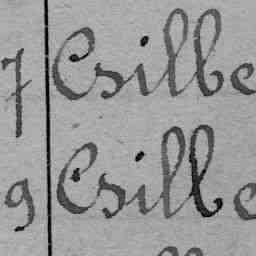 7 Csilbe
9 Csille